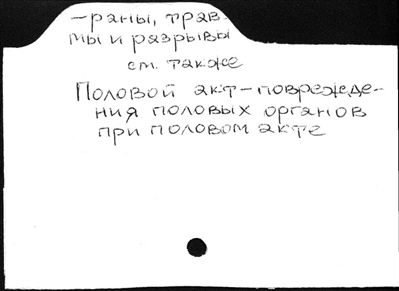 — раны, трав-
мы и разрывы
см. также
Половой акт — поврежде-
ния половых органов
при половом акте